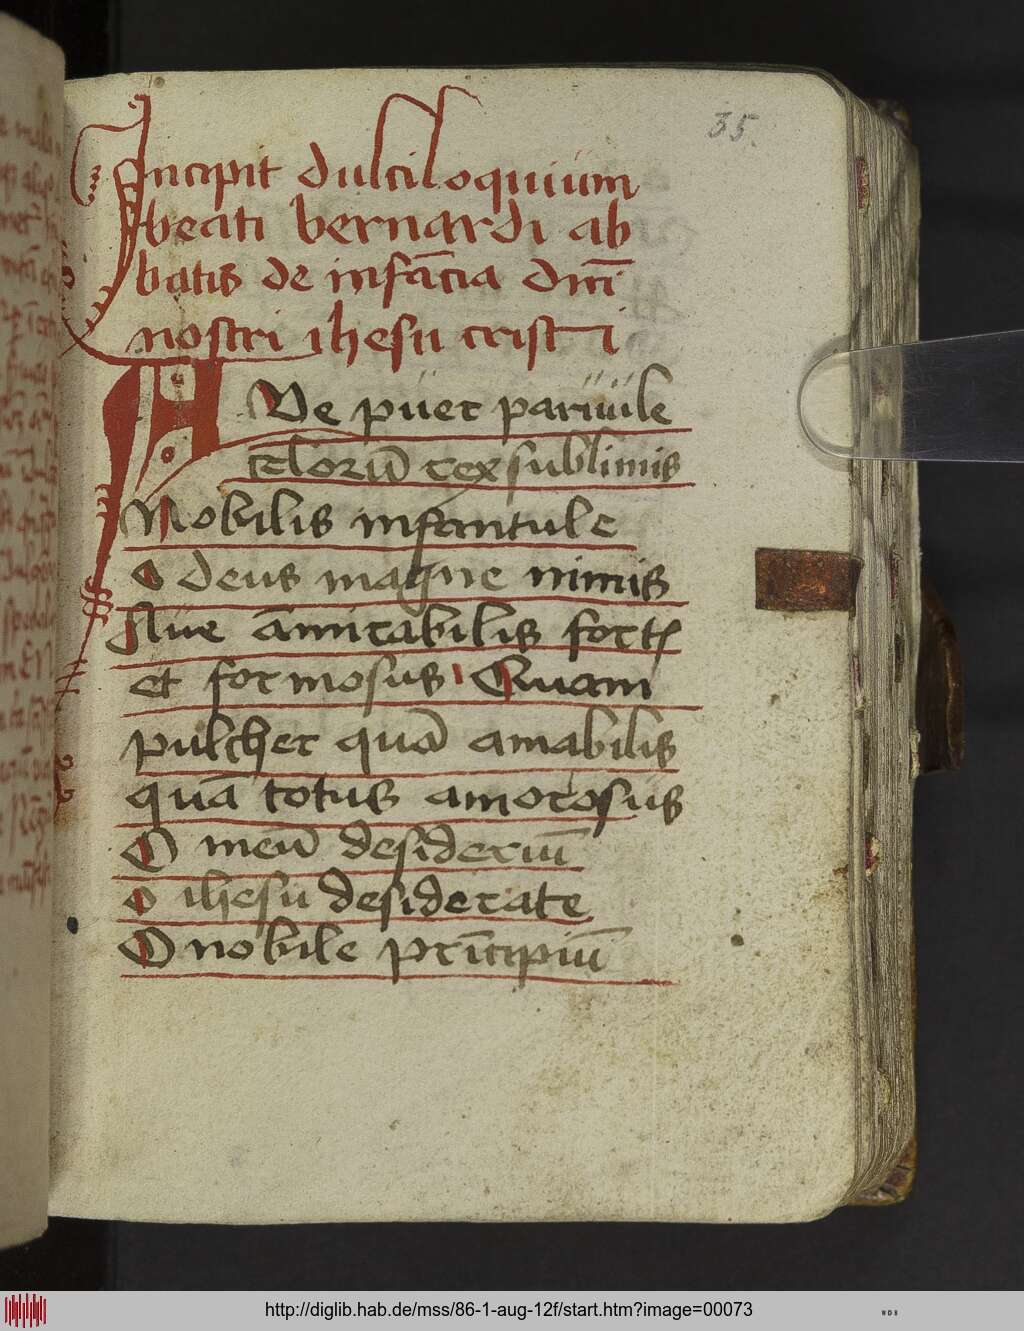 35.
Incipit dulciloquiüm
beati bernardi ab
batis de infācia dn̄i
nostri ihesu cristi
AVe püer parüüle
celorū rex sublimis
Nobilis infantule
o deus magne nimis
Aüe āmirabilis fortꝭ
et formosus Quam
pulcher quā amabilis
quā totus amorosus
O meū desideriū
o ihesü desiderate
O nobile prīcipiū
http://diglib.hab.de/mss/86-1-aug-12f/start.htm?image=00073
WDB